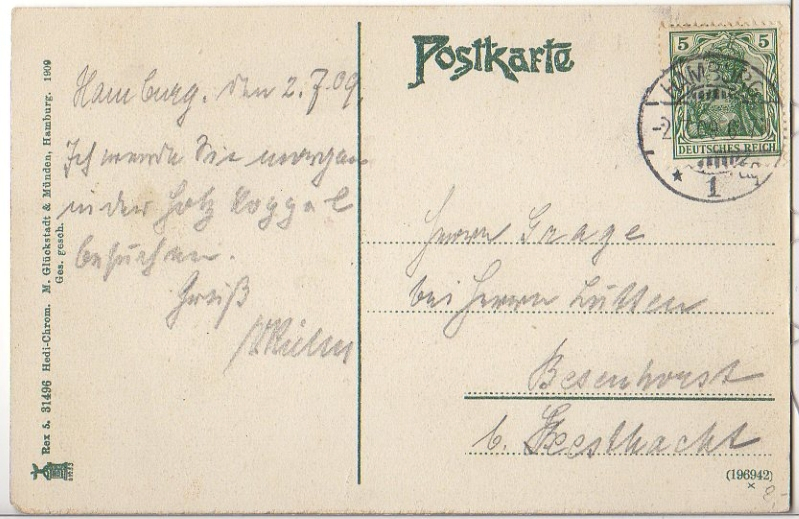 Rex 5. 31496 Hedi-Chrom. M. Glückstadt & Münden, Hamburg. 1909
Ges. gesch.
Hamburg. den 2.7.09.
Ich werde Sie morgen
in der Holz Koppel
besuchen.
Gruß
Postkarte
5 5
HAMBURG
DEUTSCHES REICH
1
Herrn Grage
bei Herrn Lütten
Besenhorst
b. Geesthacht
(196942)
x
8.-